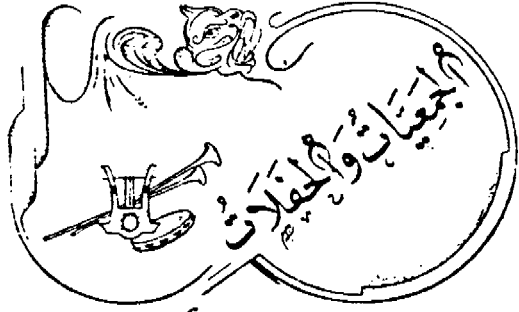 الجَمعيَّاتُ وَالحَفَلاَتُ